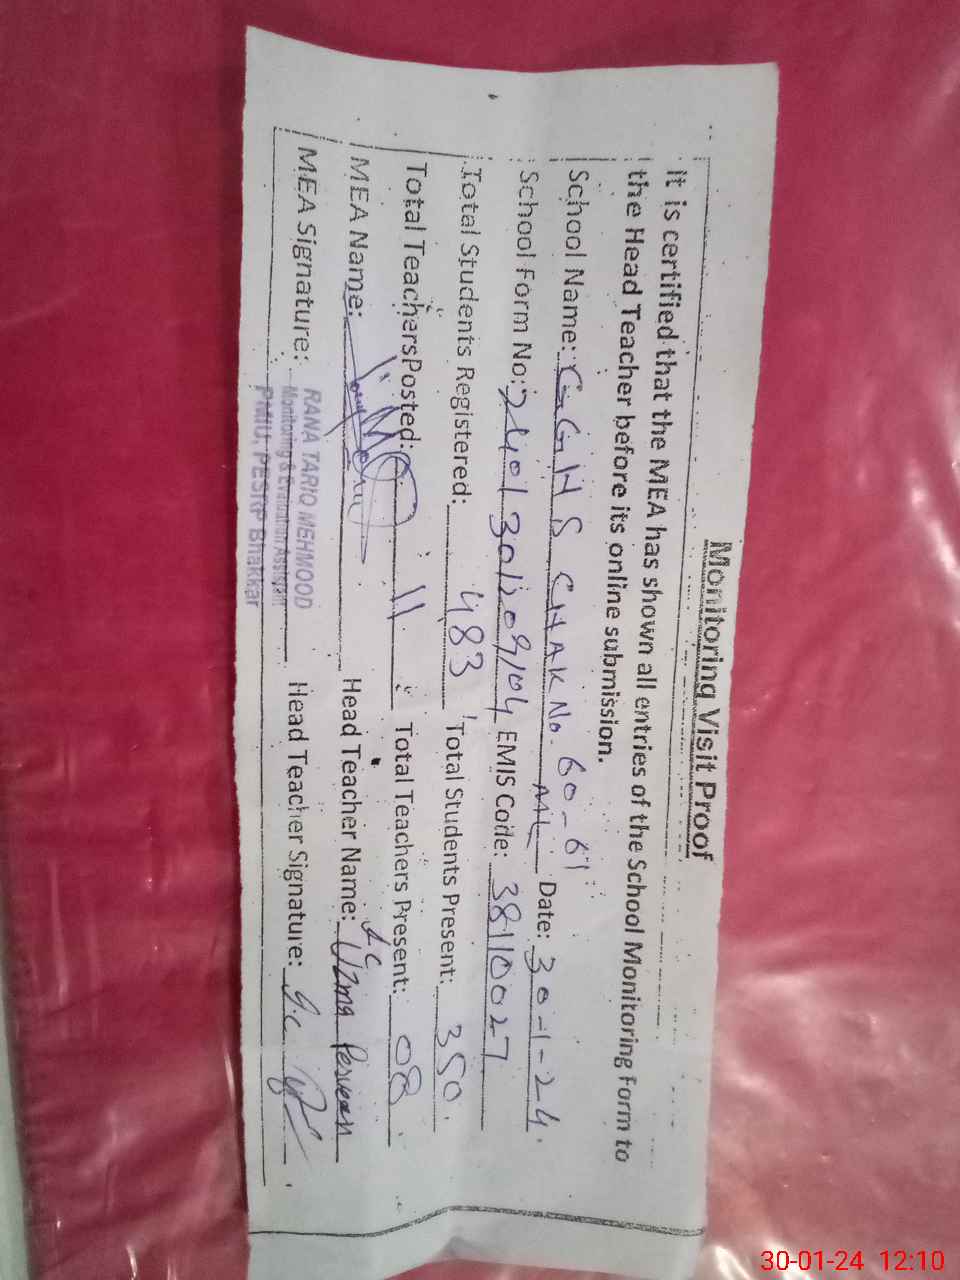 Monitoring Visit Proof
It is certified that the MEA has shown all entries of the School Monitoring Form to
the Head Teacher before its online submission.
School Name: GGHS CHAK No. 60-61
ML Date: 30-1-24.
School Form No: EMIS Code: 38110027
Total Students Registered: 483 Total Students Present: 350.
Total Teachers Posted: 11 Total Teachers Present: 08
MEA Name: Head Teacher Name: Uzma Perveen
MEA Signature: Head Teacher Signature:
RANA TARIQ MEHMOOD
Monitoring & Evaluation Assistant
PMIU, PESRP Bhakkar
30-01-24 12:10